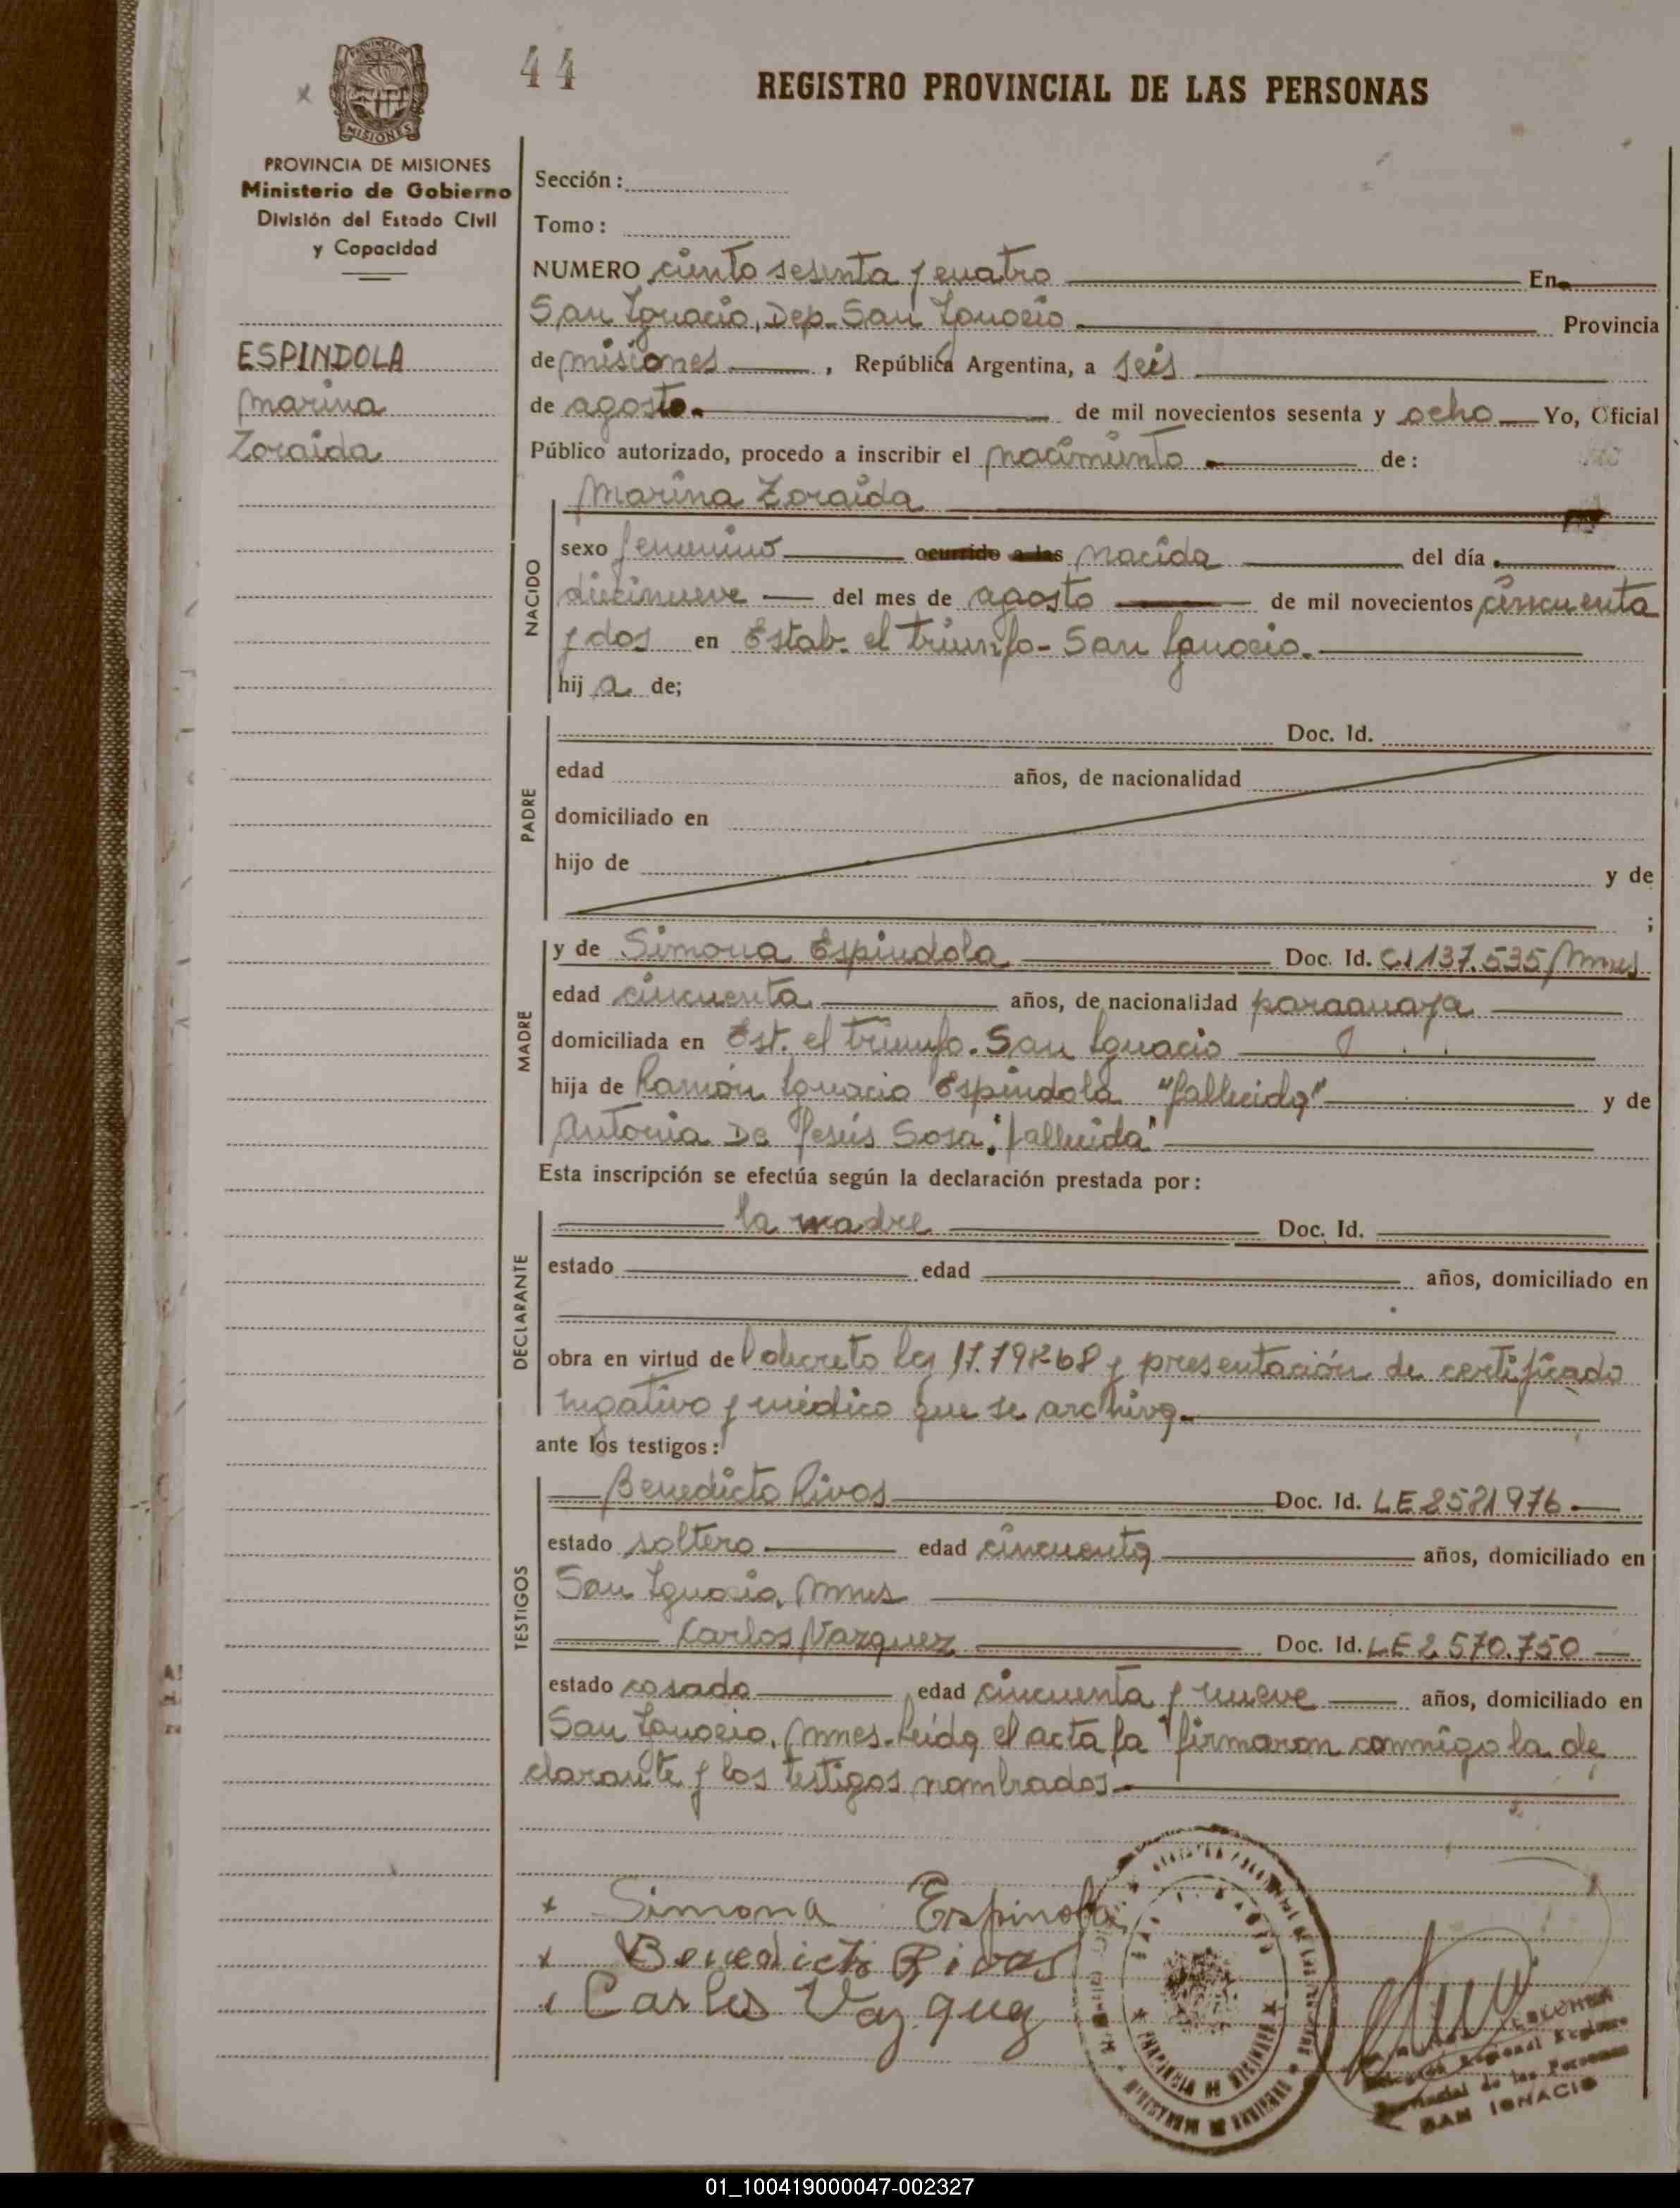 44
REGISTRO PROVINCIAL DE LAS PERSONAS
PROVINCIA DE MISIONES
Ministerio de Gobierno
División del Estado Civil
y Capacidad
ESPINDOLA
Marina
Zoraida
Sección:
Tomo:
NUMERO ciento sesenta y cuatro En
San Ignacio, Dep. San Ignacio Provincia
de misiones, República Argentina, a seis
de agosto. de mil novecientos sesenta y ocho Yo, Oficial
Público autorizado, procedo a inscribir el nacimiento de:
Marina Zoraida
NACIDO
sexo femenino ocurrido a las nacida del día
diecinueve del mes de agosto de mil novecientos cincuenta
y dos en Estab. el triunfo - San Ignacio.
hij a de;
PADRE
Doc. Id.
edad años, de nacionalidad
domiciliado en
hijo de y de
;
MADRE
y de Simona Espindola Doc. Id. CI 137.535/Mnes.
edad cincuenta años, de nacionalidad paraguaya
domiciliada en Est. el triunfo. San Ignacio
hija de Ramón Ignacio Espindola "fallecido" y de
Antonia De Jesús Sosa "fallecida"
Esta inscripción se efectúa según la declaración prestada por:
DECLARANTE
la madre Doc. Id.
estado edad años, domiciliado en
obra en virtud de l decreto ley y presentación de certificado
negativo y médico que se archiva.
ante los testigos:
TESTIGOS
Benedicto Rivas Doc. Id. LE 2581976
estado soltero edad cincuenta años, domiciliado en
San Ignacio, Mnes
Carlos Vazquez Doc. Id. LE 2.570.750
estado casado edad cincuenta y nueve años, domiciliado en
San Ignacio, Mnes. Leida el acta la firmaron conmigo la de
clarante y los testigos nombrados.
x Simona Espinola
x Benedicto Rivas
Carlos Vazquez
PROVINCIA DE MISIONES
SAN IGNACIO
01_100419000047-002327